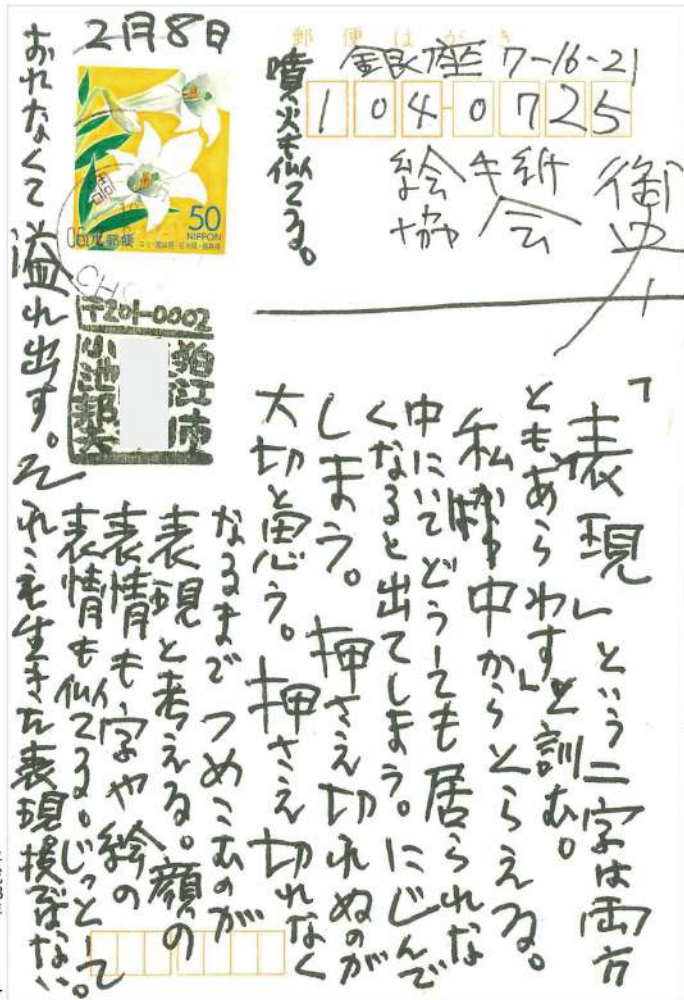 郵便はがき
2月8日
銀座 7-16-21
1040725
絵手紙
協会
御中
50
NIPPON
日本郵便
〒201-0002
狛江市
小池邦夫
「表現」という二字は両方
ともあらわす」と訓む。
私が 中からとらえる。
中にいてどうしても居られな
くなると出てしまう。にじんで
しまう。押さえ切れぬのが
大切と思う。押さえ切れなく
なるまでつめこむのが
表現と考える。顔の
表情も字や絵の
表情も似てる。じっとして
おれなくて溢れ出す。それこそ生きた表現。
噴火も似てる。